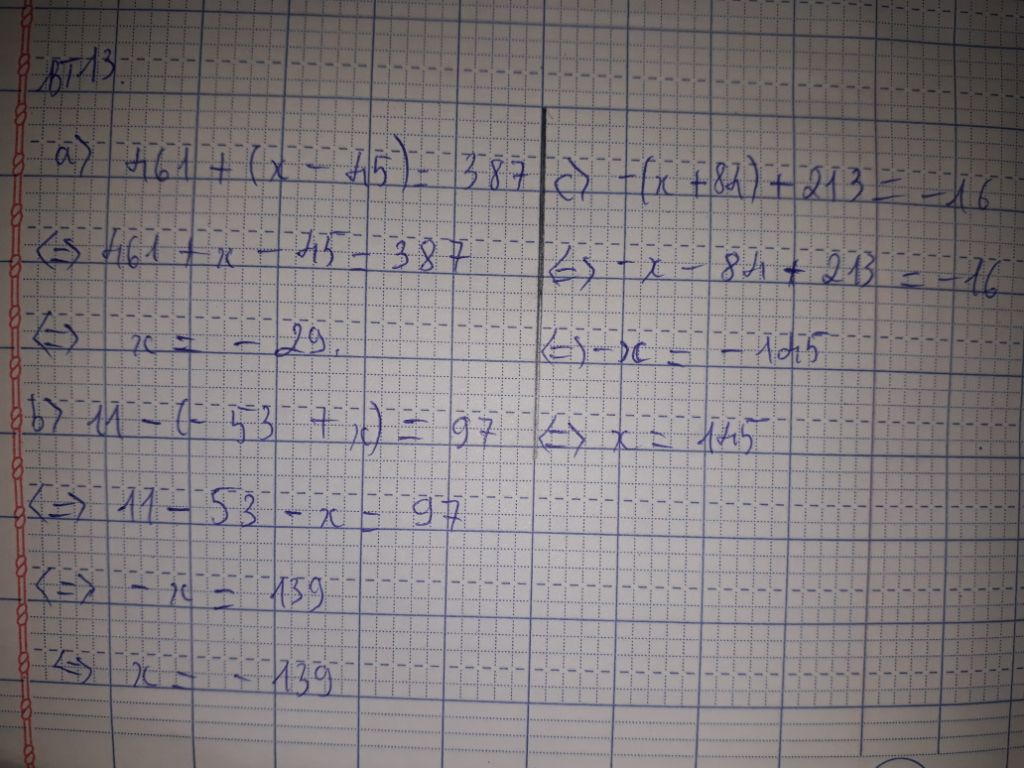 BT13.
a) 461 + (x - 45) = 387
<=> 461 + x - 45 = 387
<=> x = - 29.
b) 11 - (- 53 + x) = 97
<=> 11 - 53 - x = 97
<=> - x = 139
<=> x = - 139
c) -(x + 84) + 213 = -16
<=> -x - 84 + 213 = -16
<=> -x = - 145
<=> x = 145